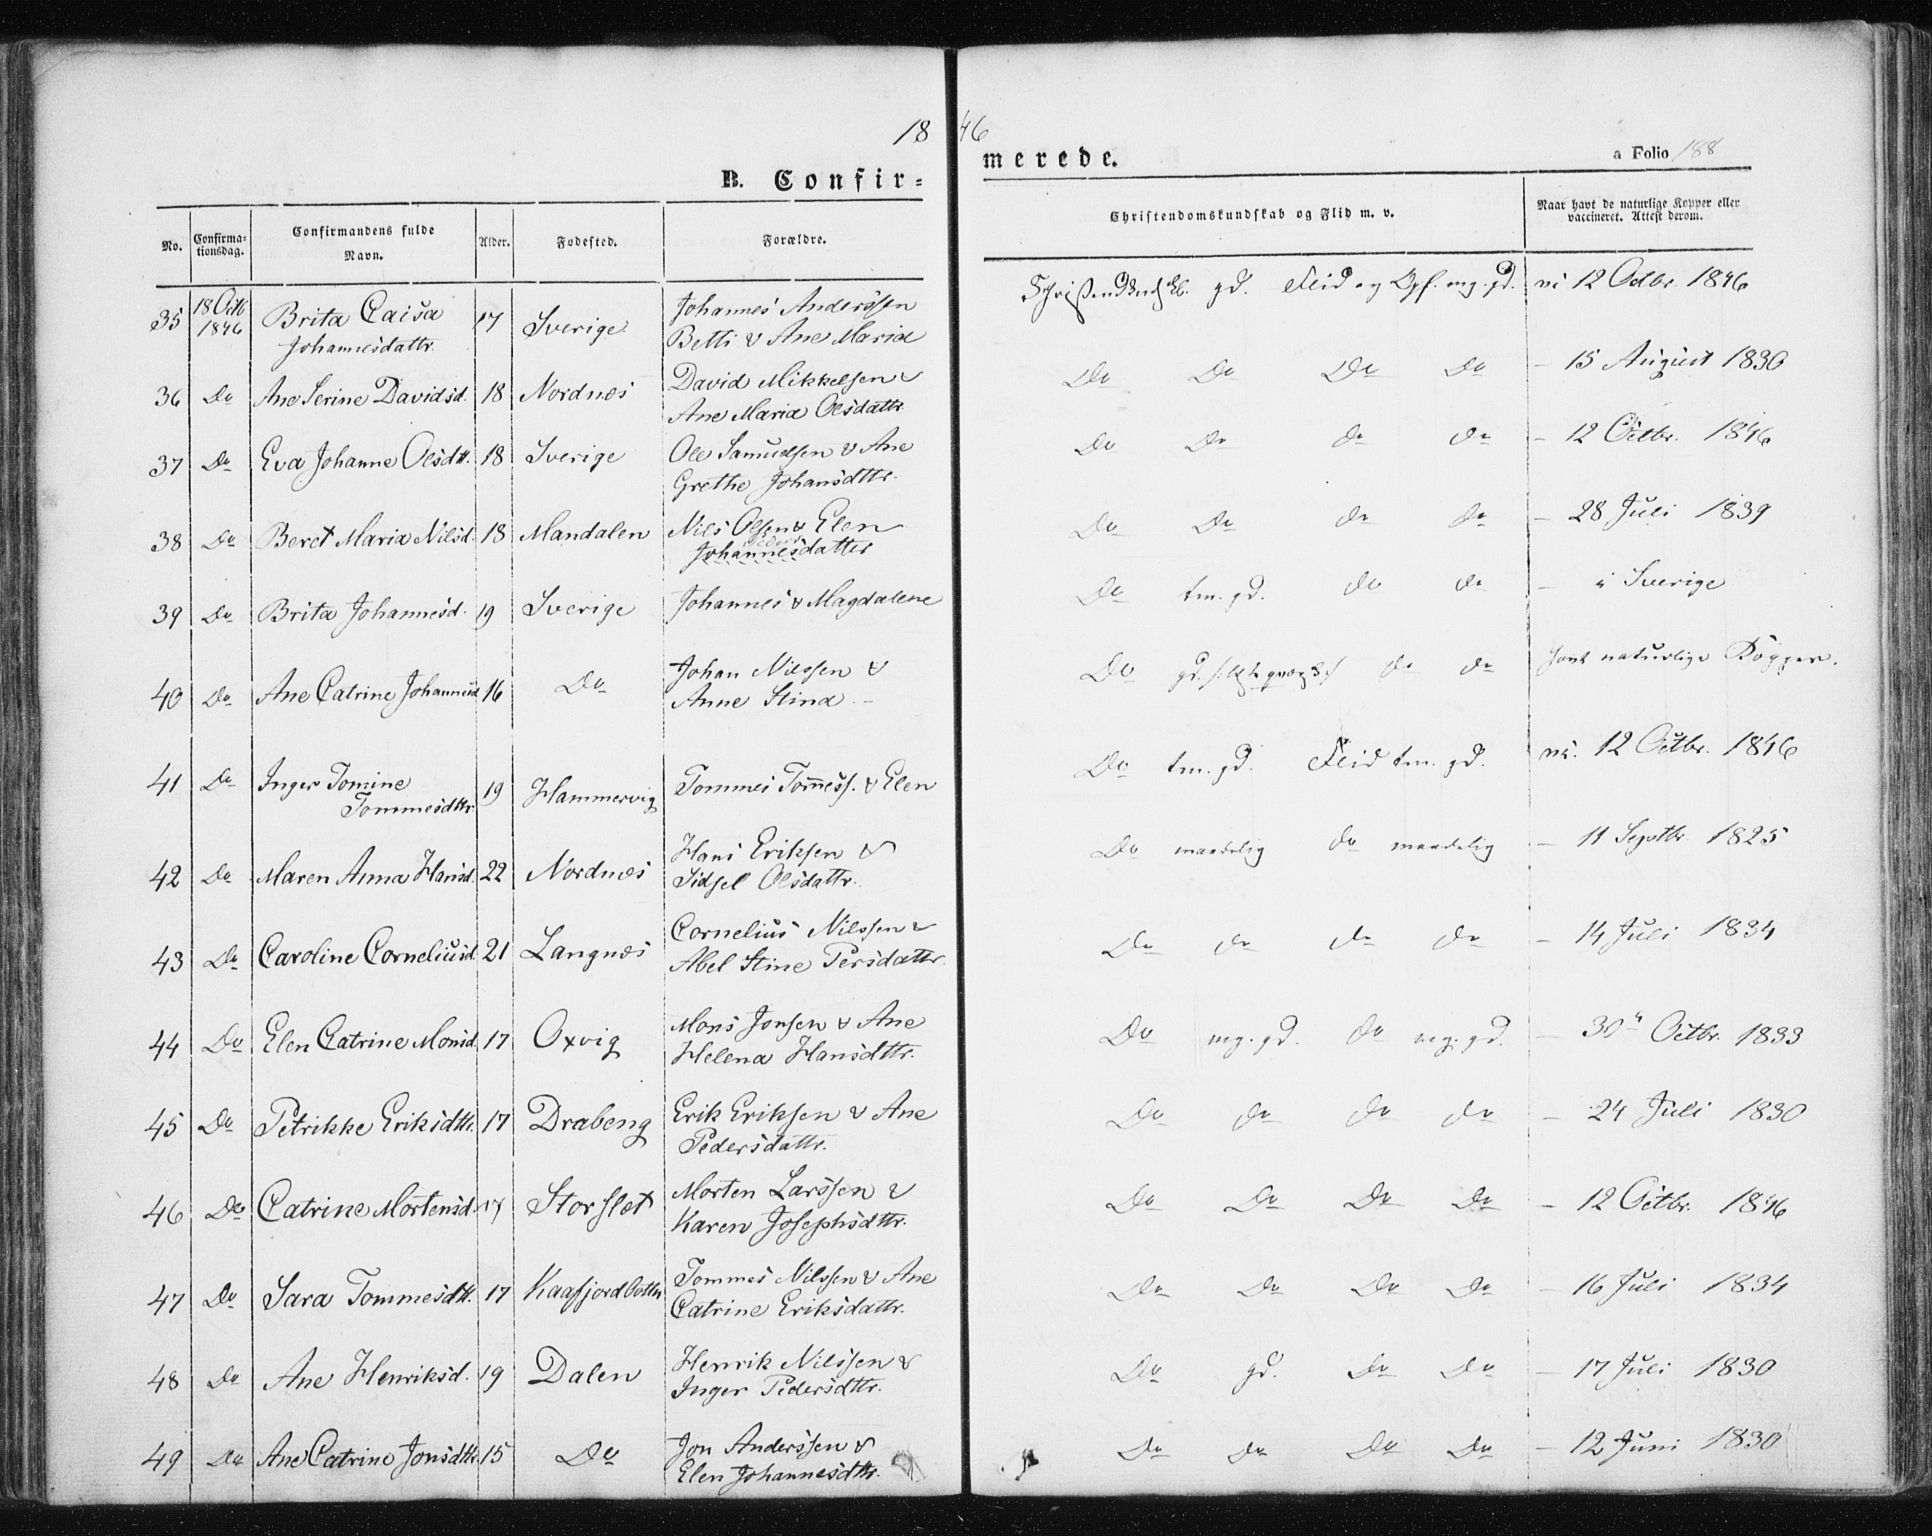 1846
B. Confirmerede.
a Folio 188
No.
Confirmationsdag.
Confirmandens fulde Navn.
Alder.
Fodested.
Forældre.
Christendomskundskab og Flid m. v.
Naar havt de naturlige Kopper eller vaccineret. Attest derom.
35 18 Octb 1846 Brita Caisa 17 Sverige Johannes Anderssen gd. Flid og Opf. mg. gd. 12 Octbr. 1846
Johannesdattr. Betti & Ane Maria
36 Do Ane Serine Davidsd. 18 Nordnæs David Mikkelsen & Do Do Do Do – 15 August 1830
Ane Maria Olsdattr.
37 Do Eva Johanne Olsdtt. 18 Sverige Ole Samuelsen & Ane Do Do do do – 12 Octbr. 1846
Grethe Johansdttr.
38 Do Beret Maria Nilsd. 18 Mandalen Nils Olsen & Elen Do Do do do – 28 Juli 1839
Johannesdatter
39 Do Brita Johannesd. 19 Sverige Johannes & Magdalene Do tm. gd. do do – i Sverige
40 Do Ane Catrine Johannesd. 16 Do Johan Nilssen & Do gd. do do havt naturlige Kopper.
Anne Stina –
41 Do Inger Tomine 19 Hammervig Tommes Tomess. & Elen Do tm. gd. Flid tm. gd. 12 Octbr. 1846
Tommesdttr.
42 Do Maren Anna Hansd. 22 Nordnæs Hans Eriksen & Do maadelig do maadelig – 11 Septbr. 1825
Sidsel Olsdattr.
43 Do Caroline Corneliusd. 21 Langnæs Cornelius Nilssen & Do do do do – 14 Juli 1834
Abel Stine Persdattr.
44 Do Elen Catrine Monsd. 17 Oxvig Mons Jonsen & Ane Do mg. gd. do mg. gd. – 30 Octbr. 1833
Helena Hansdttr.
45 Do Petrikke Eriksdttr. 17 Drabeng Erik Eriksen & Ane Do do do do – 24 Juli 1830
Pedersdattr.
46 Do Catrine Mortensd. 17 Storslet Morten Larssen & Do Do Do Do – 12 Octbr. 1846
Karen Josephsdttr.
47 Do Sara Tommesdtt. 17 Kaafjordbotten Tommes Nilssen & Ane Do Do Do Do – 16 Juli 1834
Catrine Eriksdattr.
48 Do Ane Henriksd. 19 Dalen Henrik Nilssen & Do gd. Do Do – 17 Juli 1830
Inger Pedersdttr.
49 Do Ane Catrine Jonsdttr. 15 Do Jon Anderssen & Do Do Do Do – 12 Juni 1830
Elen Johannesdttr.